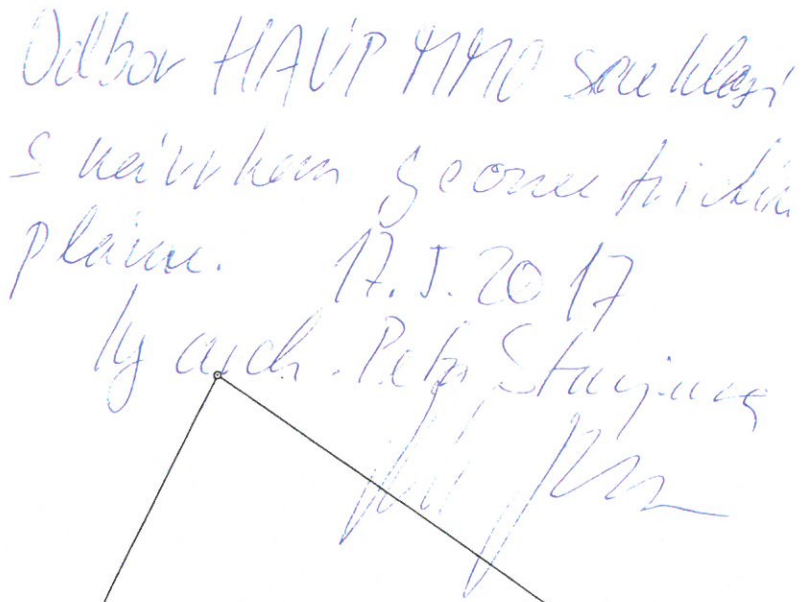 Odbor HAÚP MMO souhlasí
s návrhem geometrickým
plánu. 17.I.2017
Ing arch. Petr